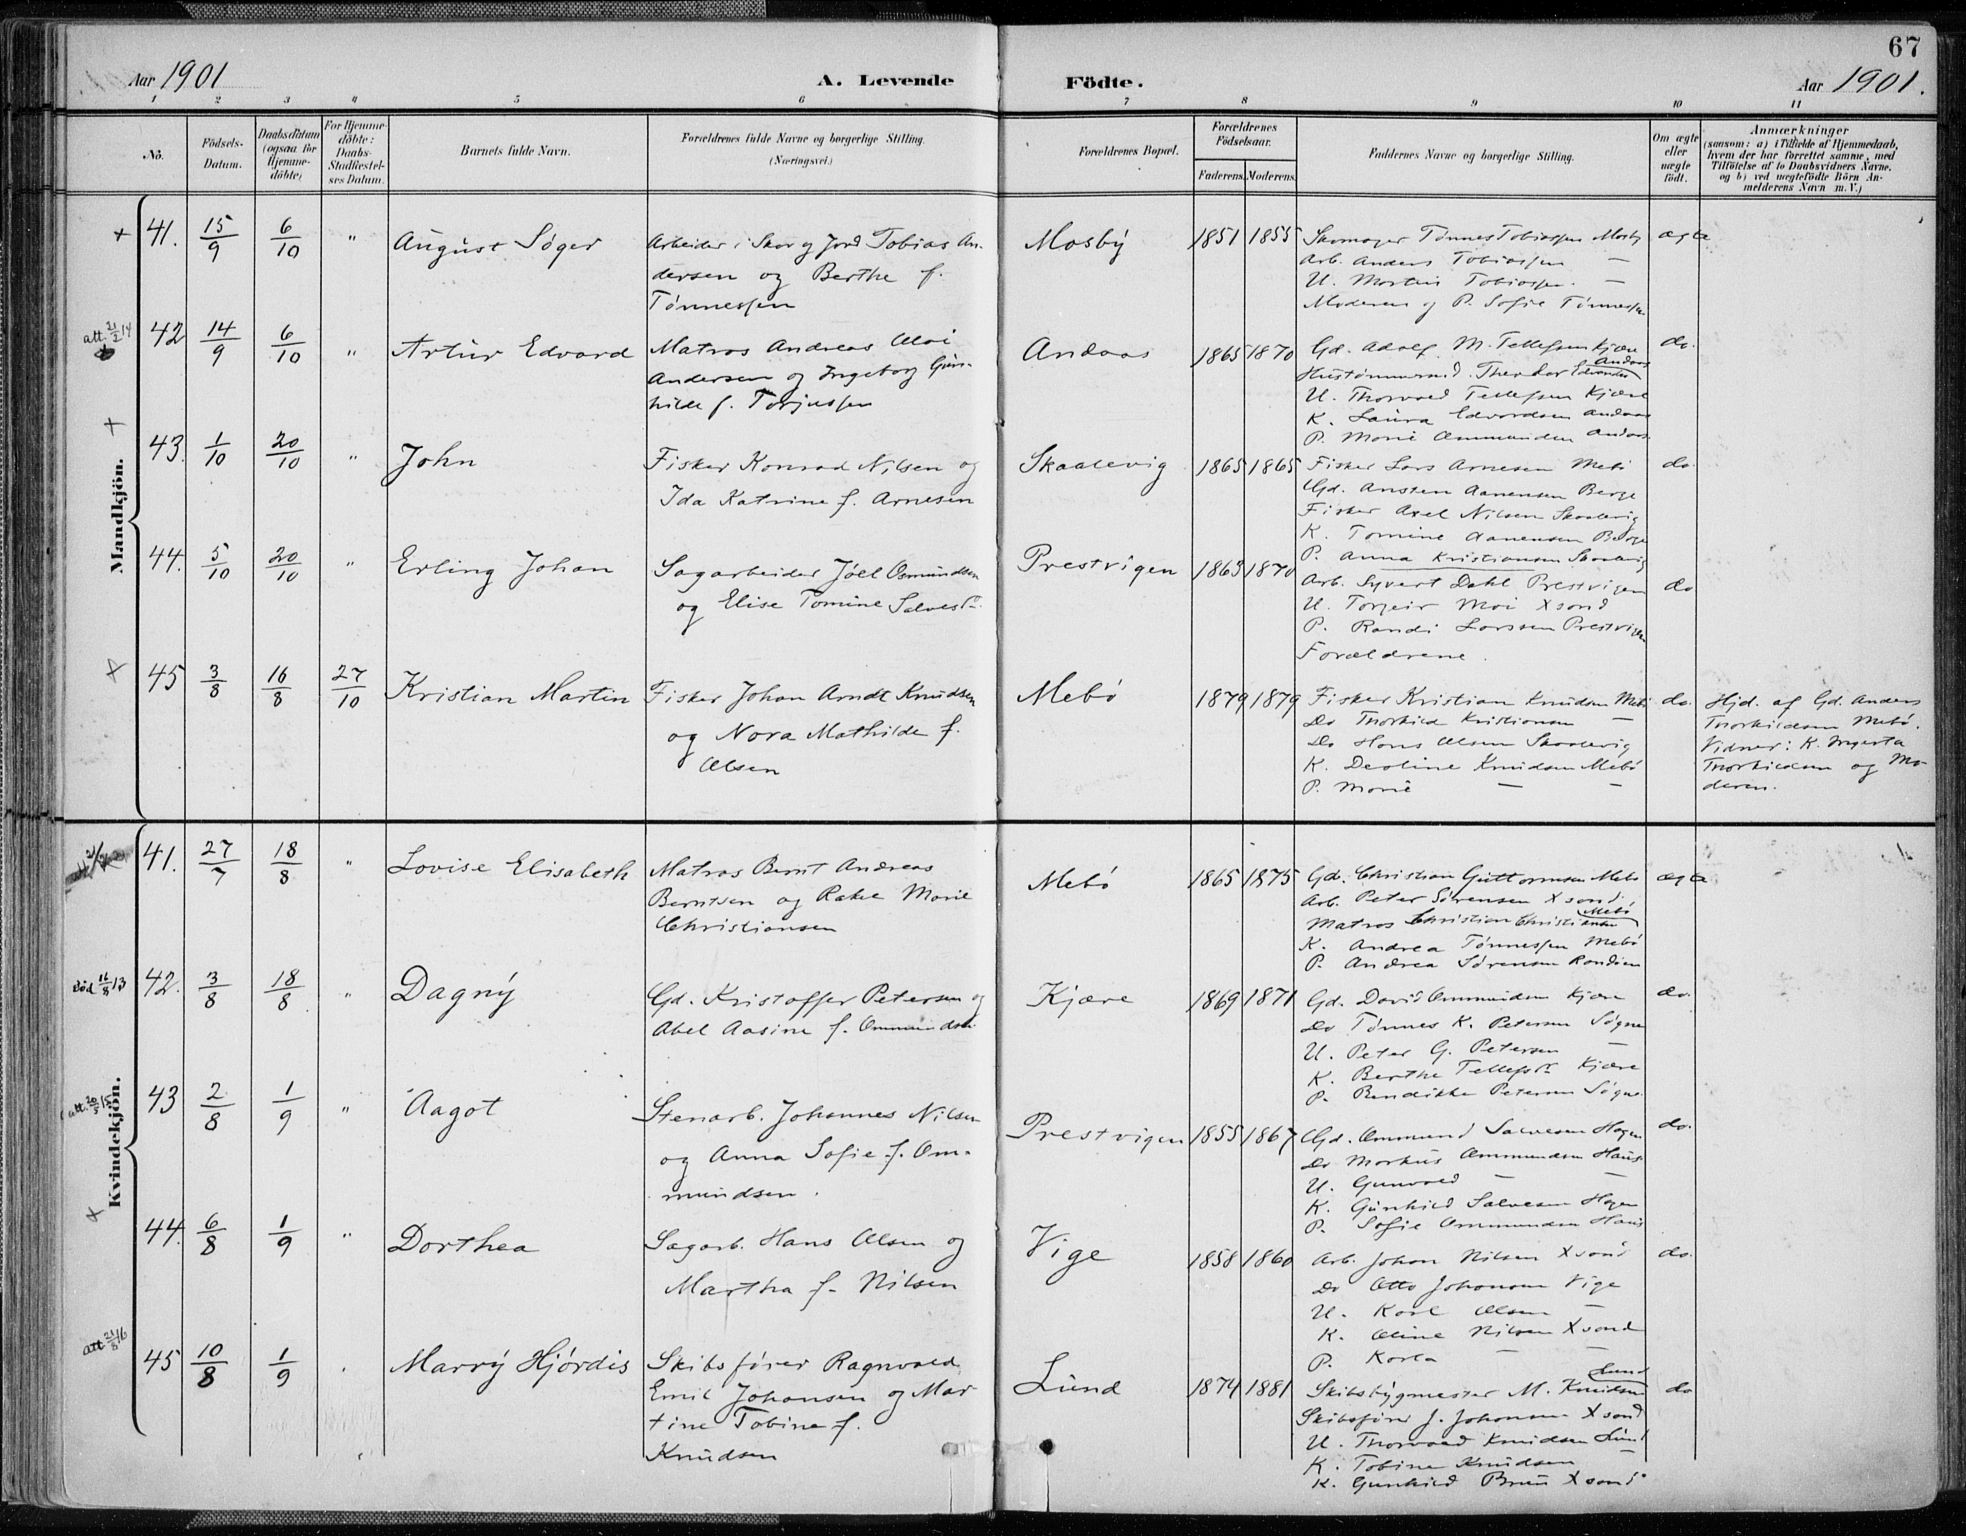 67
Aar 1901
A. Levende
Födte.
Aar 1901.
1 2 3 4 5 6 7 8 9 10 11
No.
Födsels-
Datum.
Daabsdatum
(ogsaa for
Hjemme-
döbte)
For Hjemme-
döbte:
Daabs-
Stadfæstel-
ses Datum.
Barnets fulde Navn.
Forældrenes fulde Navne og borgerlige Stilling.
(Næringsvei.)
Forældrenes Bopæl.
Forældrenes
Födselsaar.
Faderens. Moderens.
Faddernes Navne og borgerlige Stilling.
Om ægte
eller
uægte
födt.
Anmærkninger
(saasom: a) i Tilfælde af Hjemmedaab,
hvem der har forrettet samme, med
Tilföielse af to Daabsvidners Navne,
og b) ved uægtefödte Börn An-
melderens Navn m. V.)
Mandkjön.
+ 41. 15/9 6/10 " August Söger
Arbeider i Skov og Jord Tobias An-
dersen og Berthe f.
Tönnessen
Mosby
1851 1855
Skomager Tönnes Tobiassen Mosby
Arb. Anders Tobiassen —
U. Martin Tobiassen. —
Moderen og P. Sofie Tönnessen
ægte
att. 21/2 14
42 14/9 6/10 " Artur Edvard
Matros Andreas Olai
Andersen og Ingeborg Gun-
hilde f. Torjussen
Andaas
1865 1870
Gd. Adolf M. Tellefsen Kjære
Andaas
Hustömmermd. Theodor Edvardsen
U. Thorvald Tellefsen Kjære
K. Laura Edvardsen Andaas
P. Marie Ommundsen Andaas
do.
+ 43. 1/10 20/10 " John
Fisker Konrad Nilsen og
Ida Katrine f. Arnesen
Skaalevig
1865 1865
Fisker Lars Arnesen Mebö
Gd. Ansten Aanensen Berge
Fisker Axel Nilsen Skaalevig
K. Tomine Aanensen Berge
P. Anna Kristiansen Skaalevig
do.
44. 5/10 20/10 " Erling Johan
Sagarbeider Joel Osmundsen
og Elise Tomine Salvesdr.
Prestvigen
1863 1870
Arb. Syvert Dahl Prestvigen
U. Torgeir Moi Xsand
P. Randi Larssen Prestvigen
Forældrene.
do
+ 45 3/8 16/8 27/10 Kristian Martin
Fisker Johan Arndt Knudsen
og Nora Mathilde f.
Olsen
Mebö
1879 1879
Fisker Kristian Knudsen Mebö
Do Thorkild Kristiansen —
Do Hans Olsen Skaalevig
K. Deoline Knudsen Mebö
P. Marie — —
do.
Hjd. af Gd. Anders
Thorkildsen Mebö.
Vidner: K. Ingerta
Thorkildsen og Mo-
deren.
Kvindekjön.
41. 27/7 18/8 " Lovise Elisabeth
Matros Bernt Andreas
Berntsen og Rakel Marie
Christiansen
Mebö
1865 1875
Gd. Christian Guttormsen Mebö
Arb. Peter Sörensen Xsand
Mebö
Matros Christian Christiansen
K. Andrea Tönnessen Mebö
P. Andrea Sörensen Randöen
ægte
död 16/8 13
42. 3/8 18/8 " Dagny
Gd. Kristoffer Petersen og
Abel Aasine f. Ommundsen
Kjære
1869 1871
Gd. David Ommundsen Kjære
Do Tönnes K. Petersen Søgne
U. Peter G. Petersen —
K. Berthe Tellefsdr. Kjære
P. Bendikke Petersen Søgne
do.
att. 20/5 15
43 2/8 1/9 " Aagot
Stenarb. Johannes Nilsen
og Anna Sofie f. Om-
mundsen.
Prestvigen
1855 1867
Gd. Ommund Salvesen Hagen
Do Markus Ommundsen Haus
U. Gunvald — —
K. Gunhild Salvesen Hagen
P. Sofie Ommundsen Haus
do.
+ 44. 6/8 1/9 " Dorthea
Sagarb. Hans Olsen og
Martha f. Nilsen
Vige
1858 1860
Arb. Johan Nilsen Xsand
Do Otto Johansen Vige
U. Karl Olsen —
K. Oline Nilsen Xsand
P. Karla — —
do.
att 21/8 16
45 10/8 1/9 Marry Hjördis
Skibsförer Ragnvald
Emil Johansen og Mar
tine Tobine f.
Knudsen
Lund
1874 1881
Lund
Skibsbygmester M. Knudsen
Skibsförer J. Johansen Xsand
U. Thorvald Knudsen Lund
K. Tobine Knudsen —
K. Gunhild Bruu Xsand
do